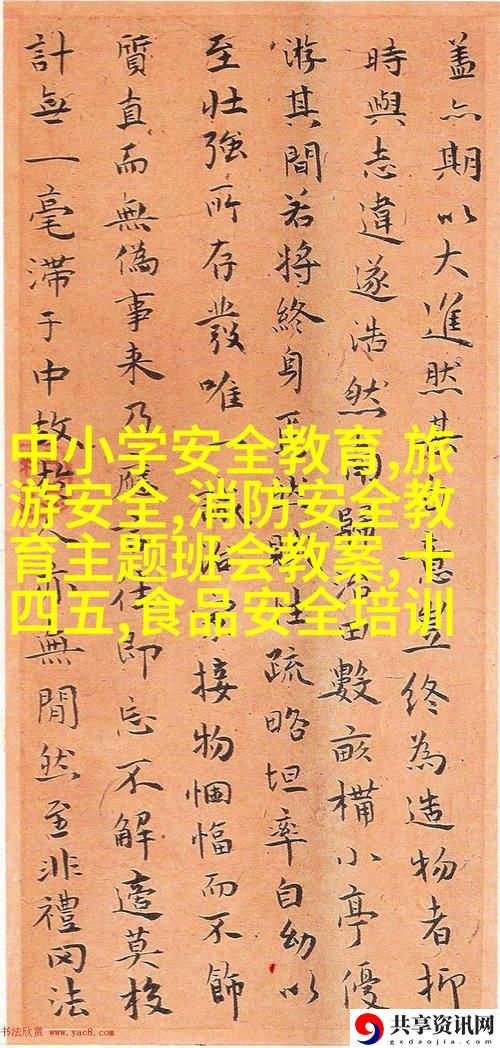 盖亦期以大進然其意豈終為造物者抑
時與志違遂浩然歸田數畝構小亭優
游其間若將終身焉賦性疏略坦率自幼以
至壯強所存發唯一接物悃愊而不飾
質直而無偽事来乃應即忘不解莫校
計無一毫滞于中故人亦無間然至非禮罔法
中小学安全教育,旅
游安全,消防安全教
育主题班会教案,十
四五,食品安全培训
书法欣赏 www.yac8.com
共享资讯网
gxdaojia.com